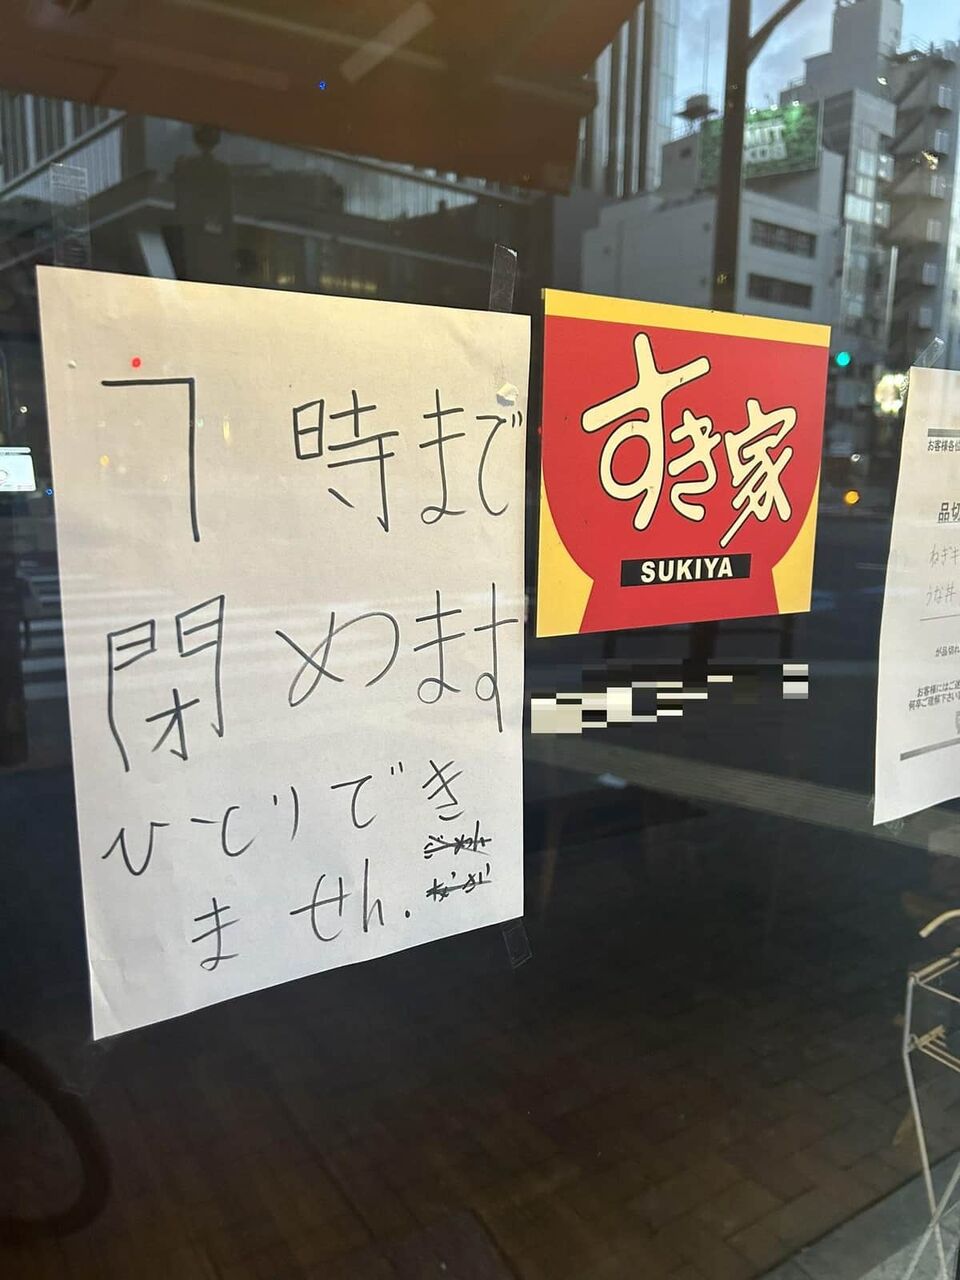 7時まで
閉めます
ひとりでき
ません.
すき家
SUKIYA
お客様各位
品切
ねぎキ
うな丼
が品切れ
お客様にはご迷
何卒ご理解下さい